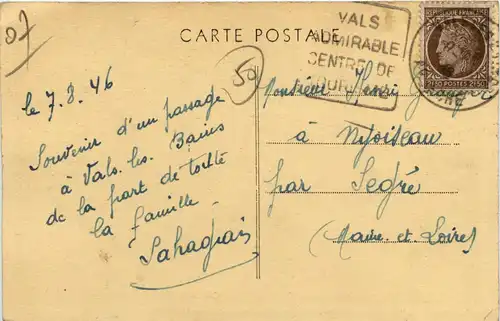 07
CARTE POSTALE
VALS
ADMIRABLE
CENTRE DE
TOURISME
50
le 7.8.46
Souvenir d'un passage
à Vals. les. Bains
de la part de toute
la famille
Monsieur Henri
à Nyoiseau
par Segré
(Maine. et. Loire)